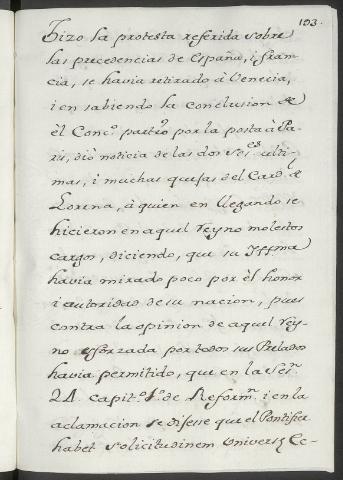 193.
Hizo la protesta referida sobre
las precedencias de España, i Fran-
cia, se havia retirado à Venecia,
i en sabiendo la conclusion de
èl Conc.º partiò por la posta à Pa-
ris, diò noticia de las dos Ses.es ulti-
mas, i muchas quejas del Card.l de
Lorena, à quien en llegando se
hicieron en aquel reyno molestos
cargos, diciendo, que su Illma
havia mirado poco por èl honor
i autoridad de su nacion, pues
contra la opinion de aquel rey-
no esforzada por todos sus Prelados
havia permitido, que en la Ses.n
24. capit.º 1.º de Reform.n i en la
aclamacion se dijesse que el Pontifex
habet solicitudinem Universę Ec-